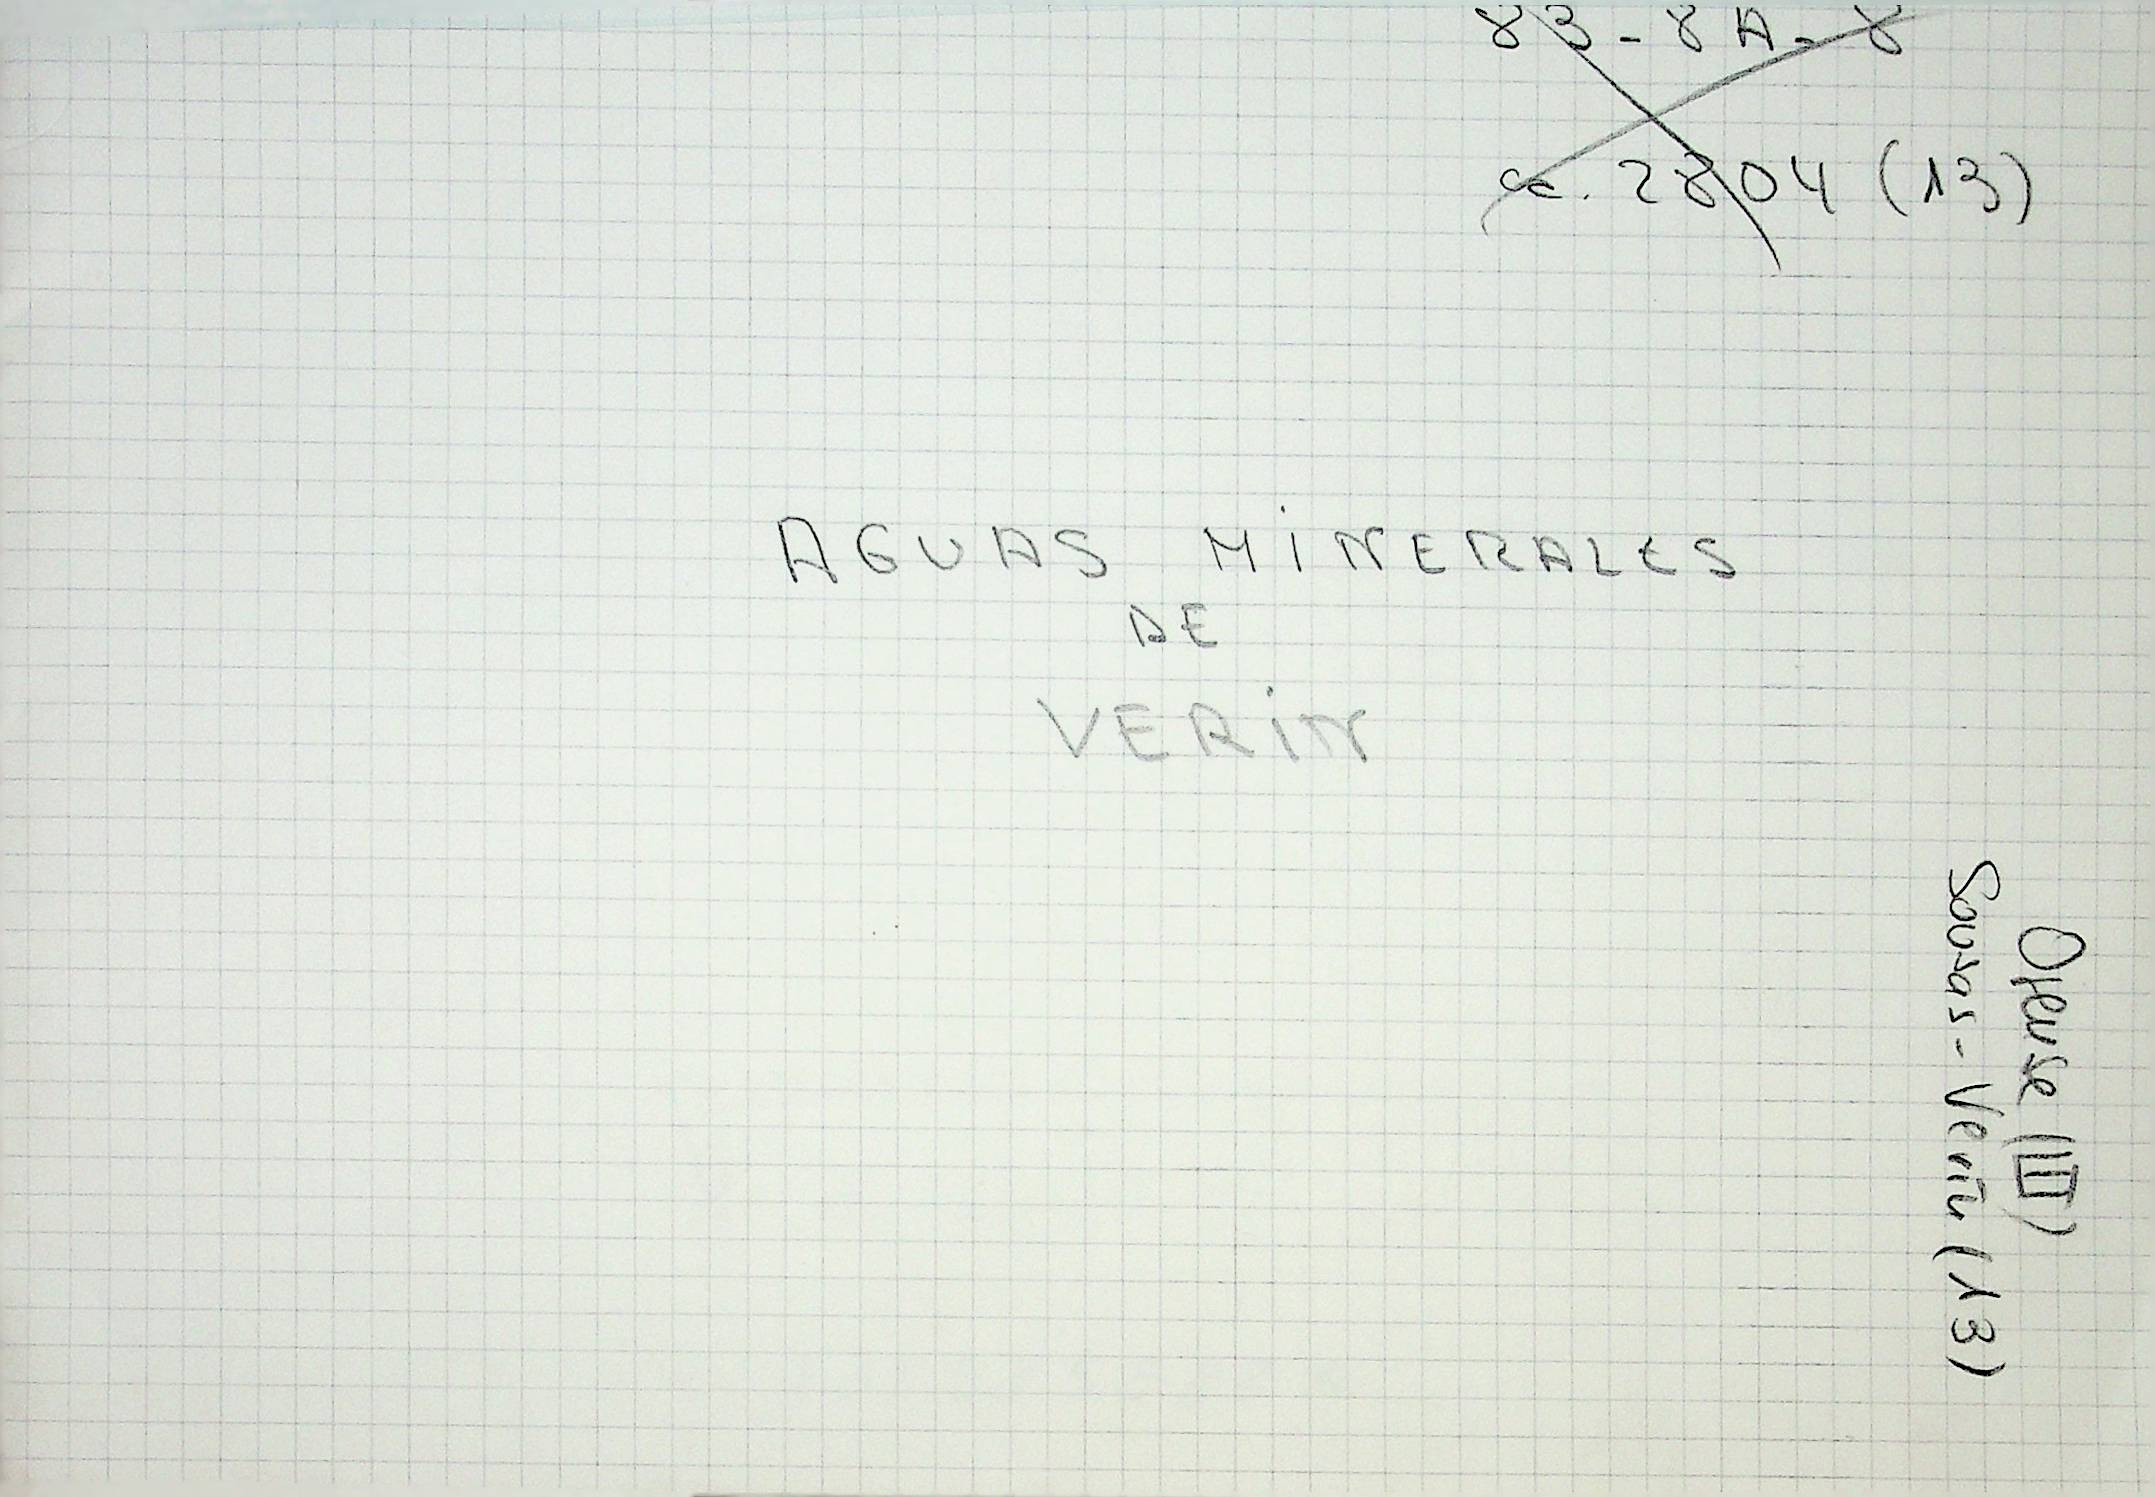 83-8A-8
cc. 2804 (13)
AGUAS MINERALES
DE
VERIN
Orense (III)
Sousas-Verín (13)